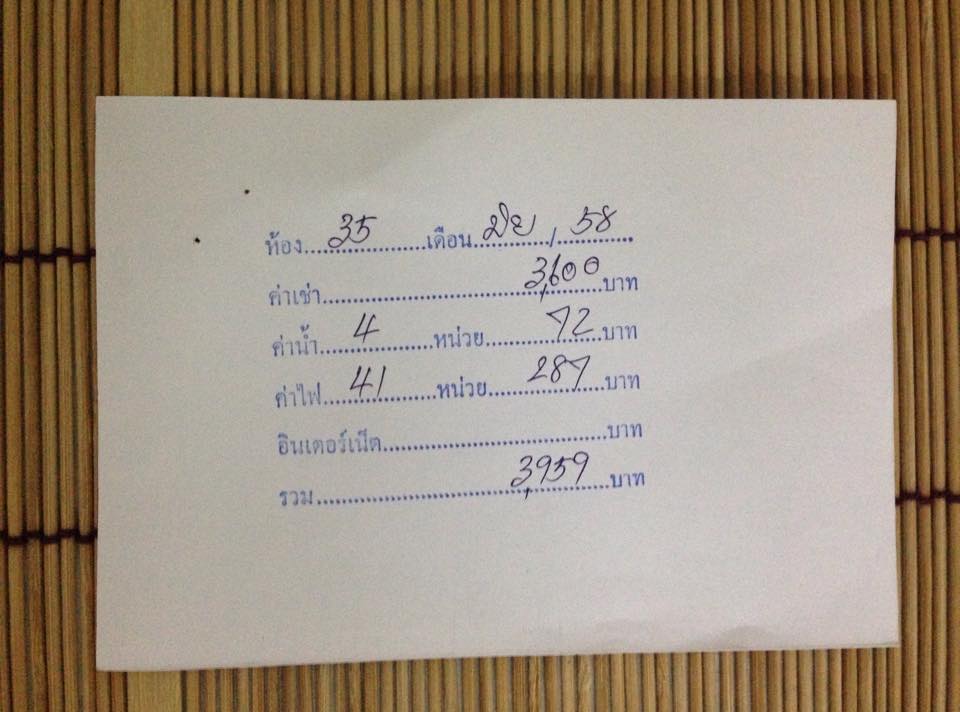 ห้อง....35....เดือน..มิย../..58..
ค่าเช่า....3,600....บาท
ค่าน้ำ....4....หน่วย....72....บาท
ค่าไฟ....41....หน่วย....287....บาท
อินเตอร์เน็ต........บาท
รวม....3,959....บาท